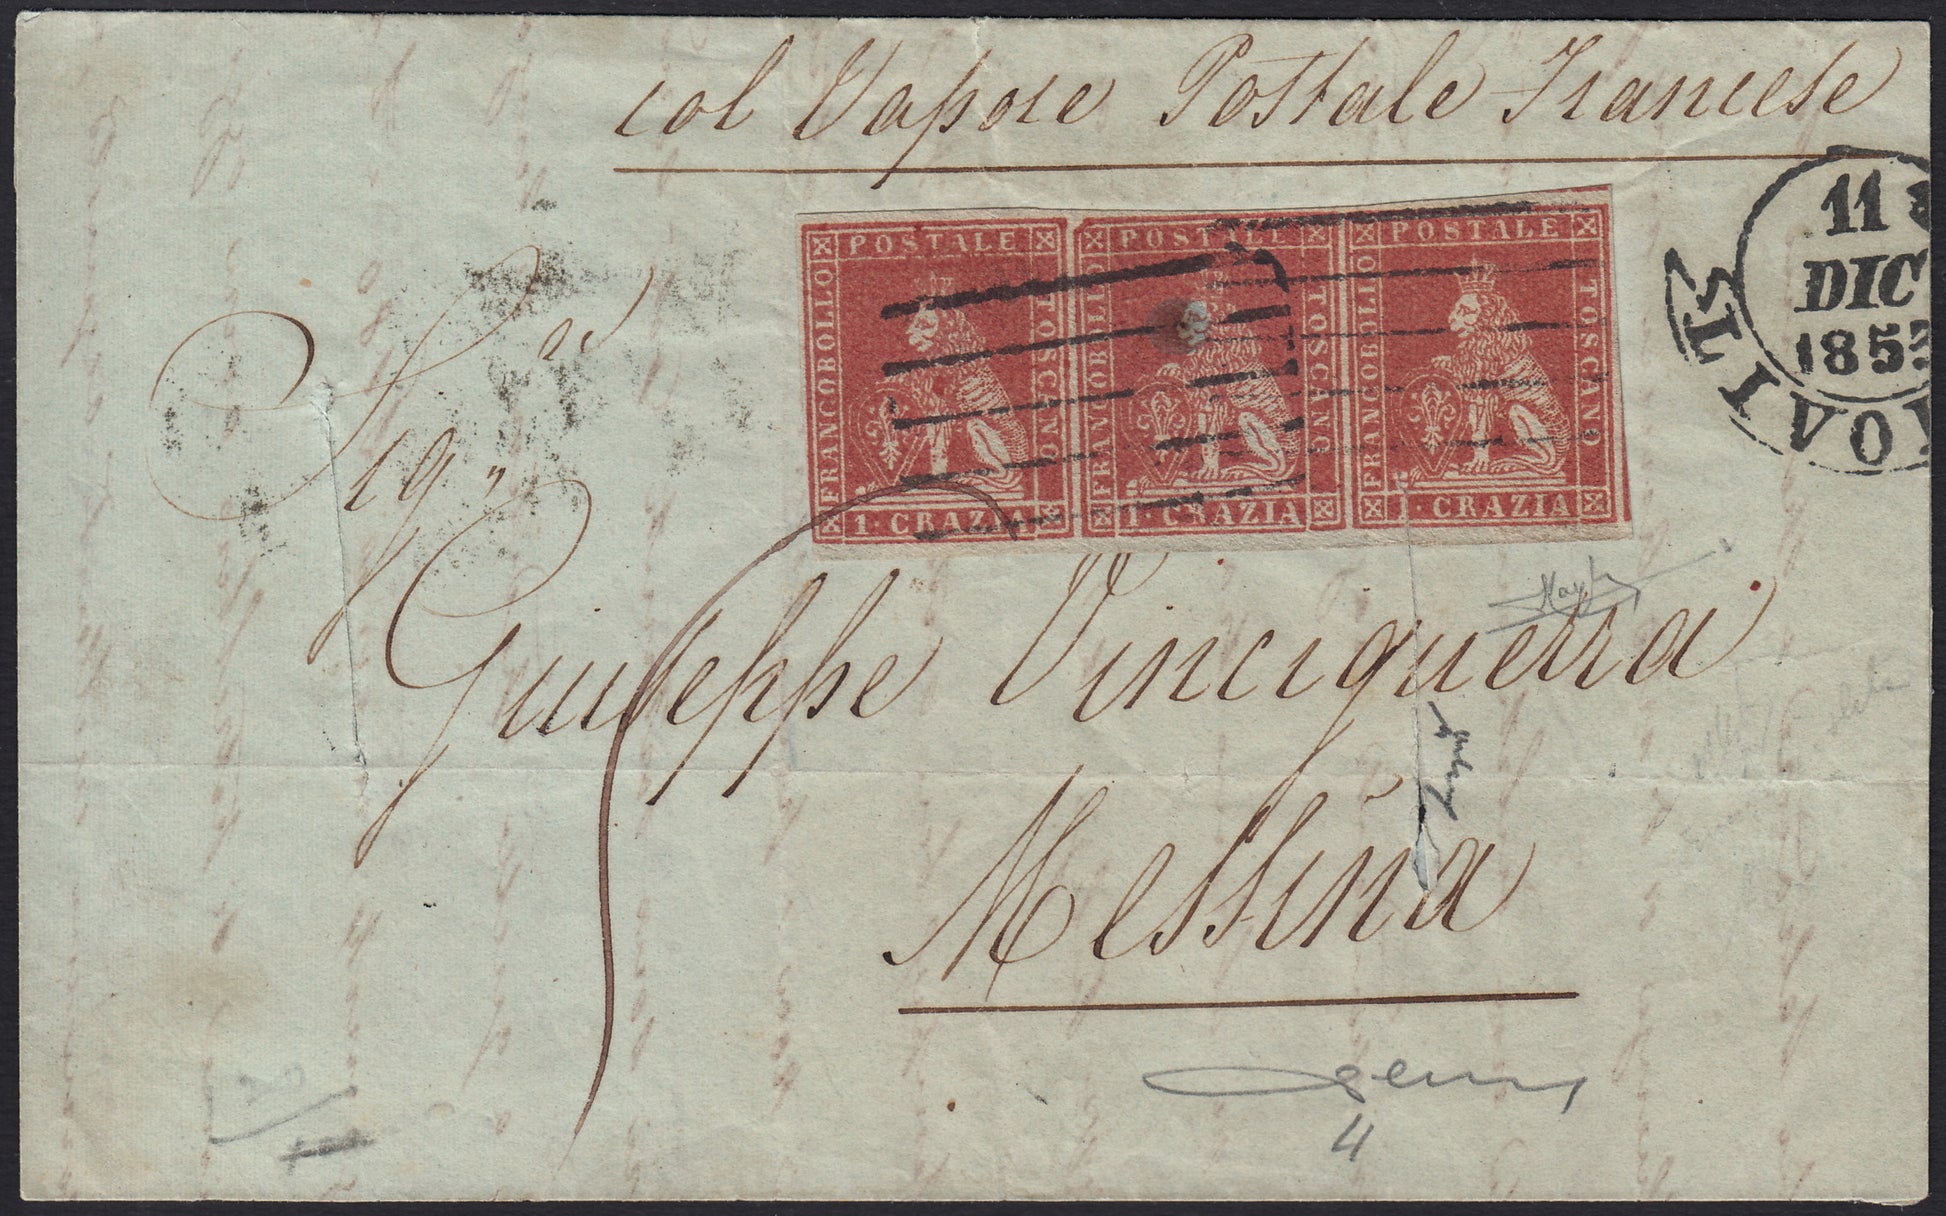 col Vapore Postale Francese
11
DIC
185
LIVO
POSTALE POSTALE POSTALE
FRANCOBOLLO TOSCANO FRANCOBOLLO TOSCANO FRANCOBOLLO TOSCANO
1·CRAZIA 1·CRAZIA 1·CRAZIA
Sigr
Giuseppe Vinciguerra
Messina
4